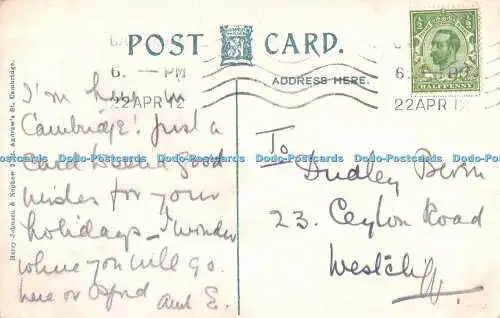 POST CARD.
ADDRESS HERE.
HALFPENNY
6. — PM
22 APR 12
6.
22 APR 12
I'm here in
Cambridge! Just a
Card to send good
wishes for your
holidays — I wonder
where you will go
here or Oxford
Aunt E.
To
Dudley
23. Ceylon Road
Westcliff
Dodo-Postcards Dodo-Postcards Dodo-Postcards Dodo-Postcards Dodo-Postcards
Harry Johnson & Nephew St. Andrew's St. Cambridge.